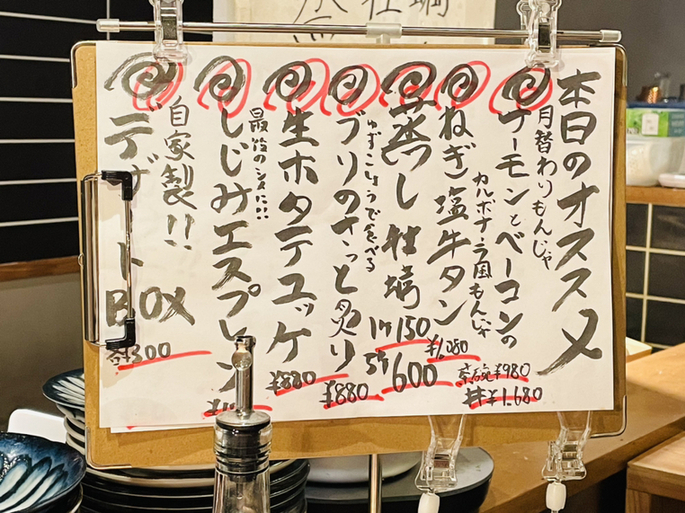 本日のオススメ
月替わりもんじゃ
サーモンとベーコンの
カルボナーラ風もんじゃ
茶碗¥980
丼¥1.680
ねぎ塩牛タン
¥1,080
蒸し牡蠣
1ケ150
5ケ600
ブリのさっと炙り
ゆずこしょうで食べる
¥880
生ホタテユッケ
¥880
しじみエスプレッソ
最後のシメに!!
自家製!!
BOX